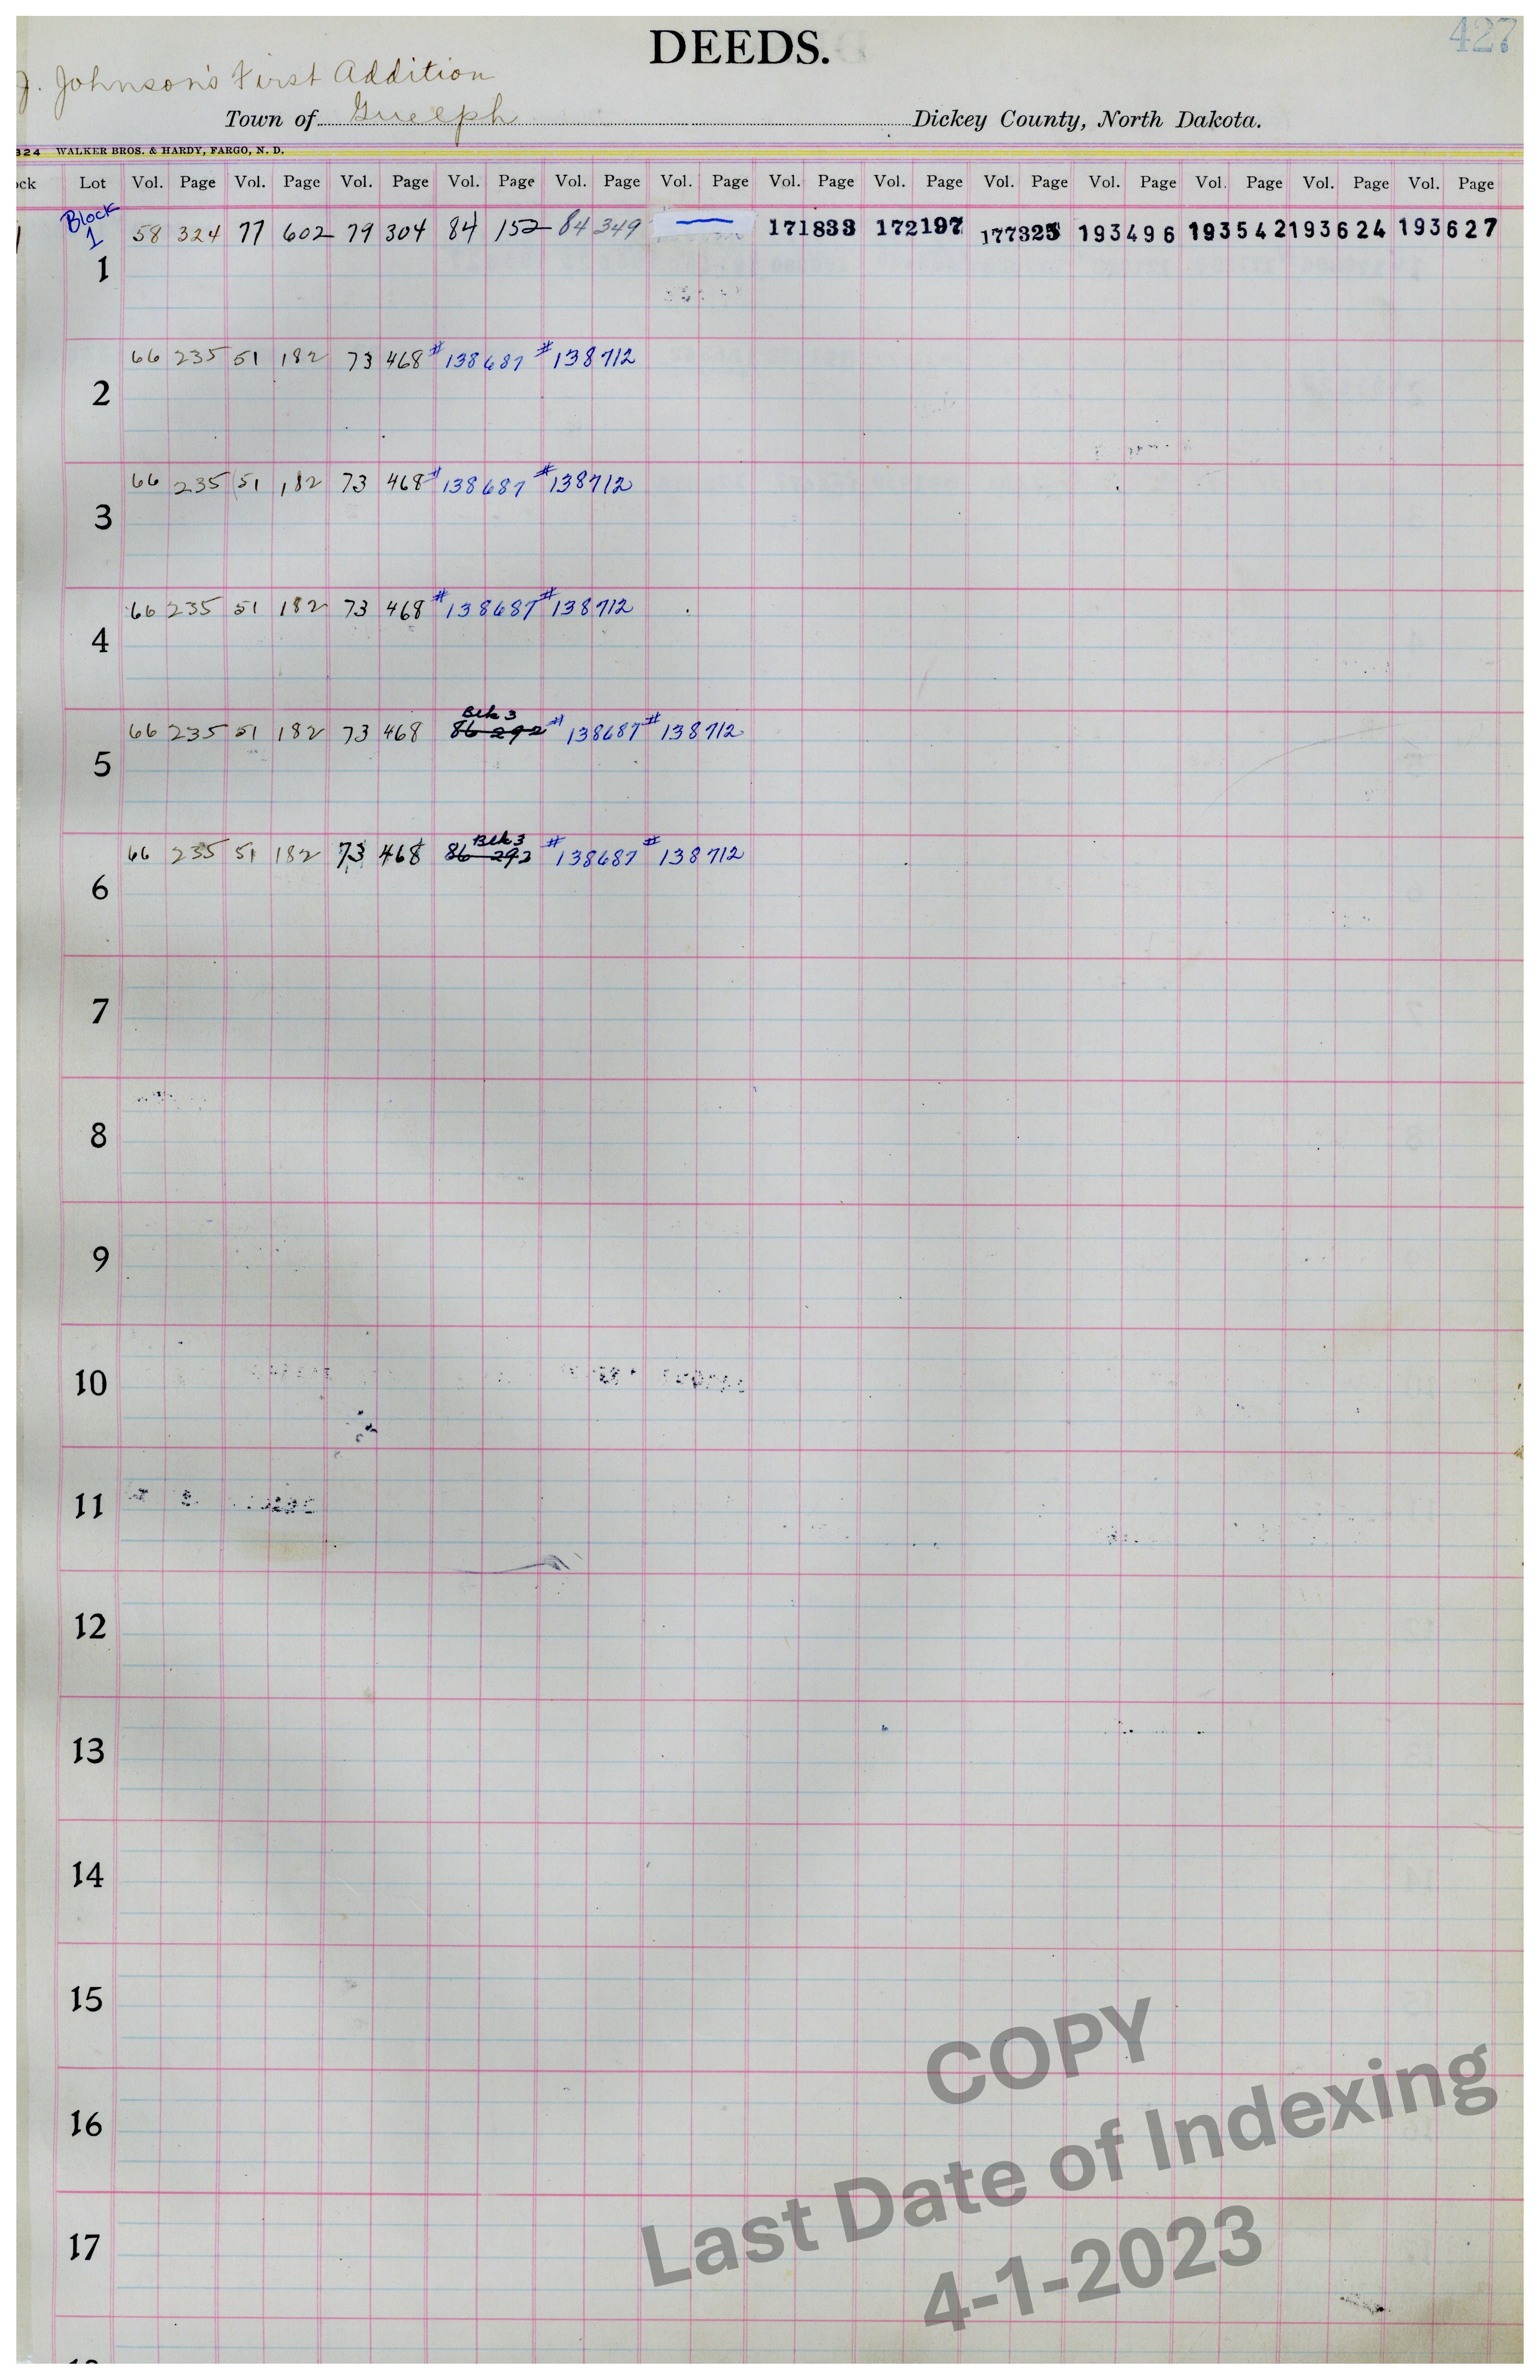 427
DEEDS.
J. Johnson's First Addition
Town of Guelph Dickey County, North Dakota.
324 WALKER BROS. & HARDY, FARGO, N. D.
ck Lot Vol. Page Vol. Page Vol. Page Vol. Page Vol. Page Vol. Page Vol. Page Vol. Page Vol. Page Vol. Page Vol. Page Vol. Page Vol. Page
Block
1 58 324 77 602 79 304 84 152 84 349 171833 172197 177325 193496 193542 193624 193627
1
66 235 51 182 73 468 #138687 #138712
2
66 235 51 182 73 468 #138687 #138712
3
66 235 51 182 73 468 #138687 #138712
4
Blk 3
66 235 51 182 73 468 86 292 #138687 #138712
5
Blk 3
66 235 51 182 73 468 86 292 #138687 #138712
6
7
8
9
10
11
12
13
14
15
16
17
COPY
Last Date of Indexing
4-1-2023